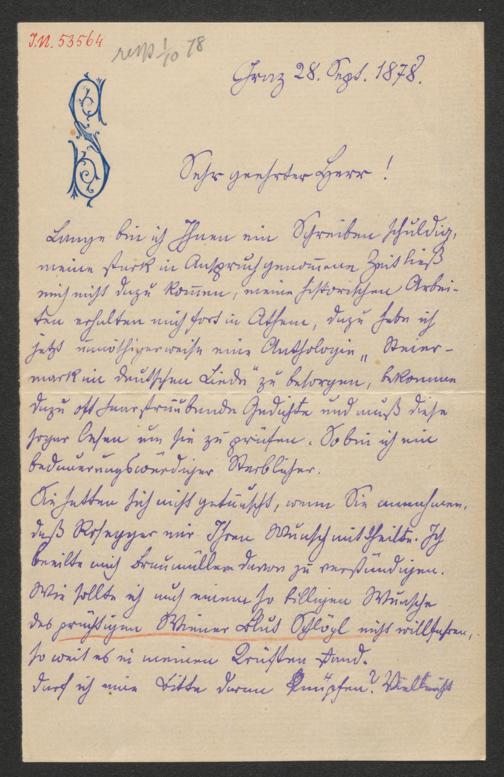 I.N. 53564
resp 1/10 78
Graz 28. Sept. 1878.
Sehr geehrter Herr!
Lange bin ich Ihnen ein Schreiben schuldig,
meine stark in Anspruch genom̄ene Zeit ließ
mich nicht dazu kom̄en, meine historischen Arbei-
ten erhalten mich fort in Athem, dazu habe ich
jetzt unnöthigerweise eine Anthologie „Steier-
mark im deutschen Liede" zu besorgen, bekomme
dazu oft haarsträubende Gedichte und muß diese
sogar lesen um sie zu prüfen. So bin ich ein
bedauerungswürdiger Sterblicher.
Sie hatten sich nicht getäuscht, wenn Sie annahmen,
daß Rosegger mir Ihren Wunsch mittheilte. Ich
beeilte mich Braumüller davon zu verständigen.
Wie sollte ich auch einem so billigen Wunsche
des prächtigen Wiener Schlögl nicht willfahren,
so weit es in meinen Kräften stand.
Darf ich eine Bitte daran knüpfen? Vielleicht